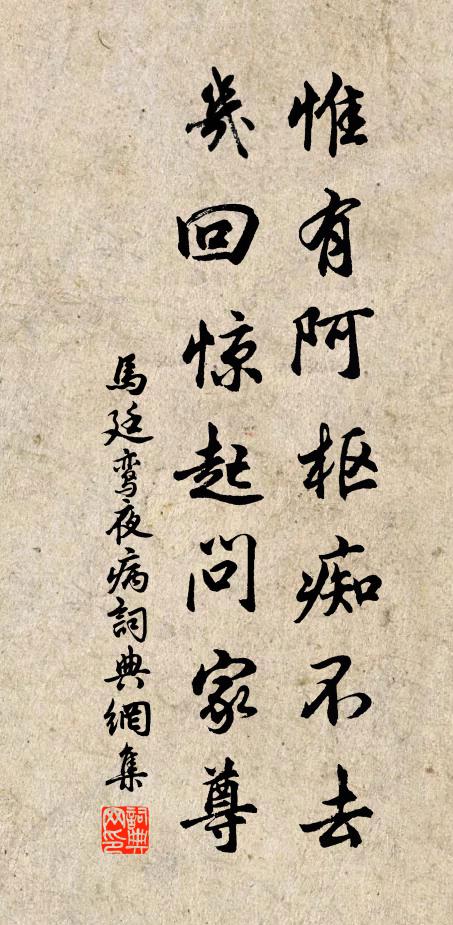 惟有阿枢痴不去
几回惊起问家尊
馬廷鸾夜病詞典網集
詞典網印